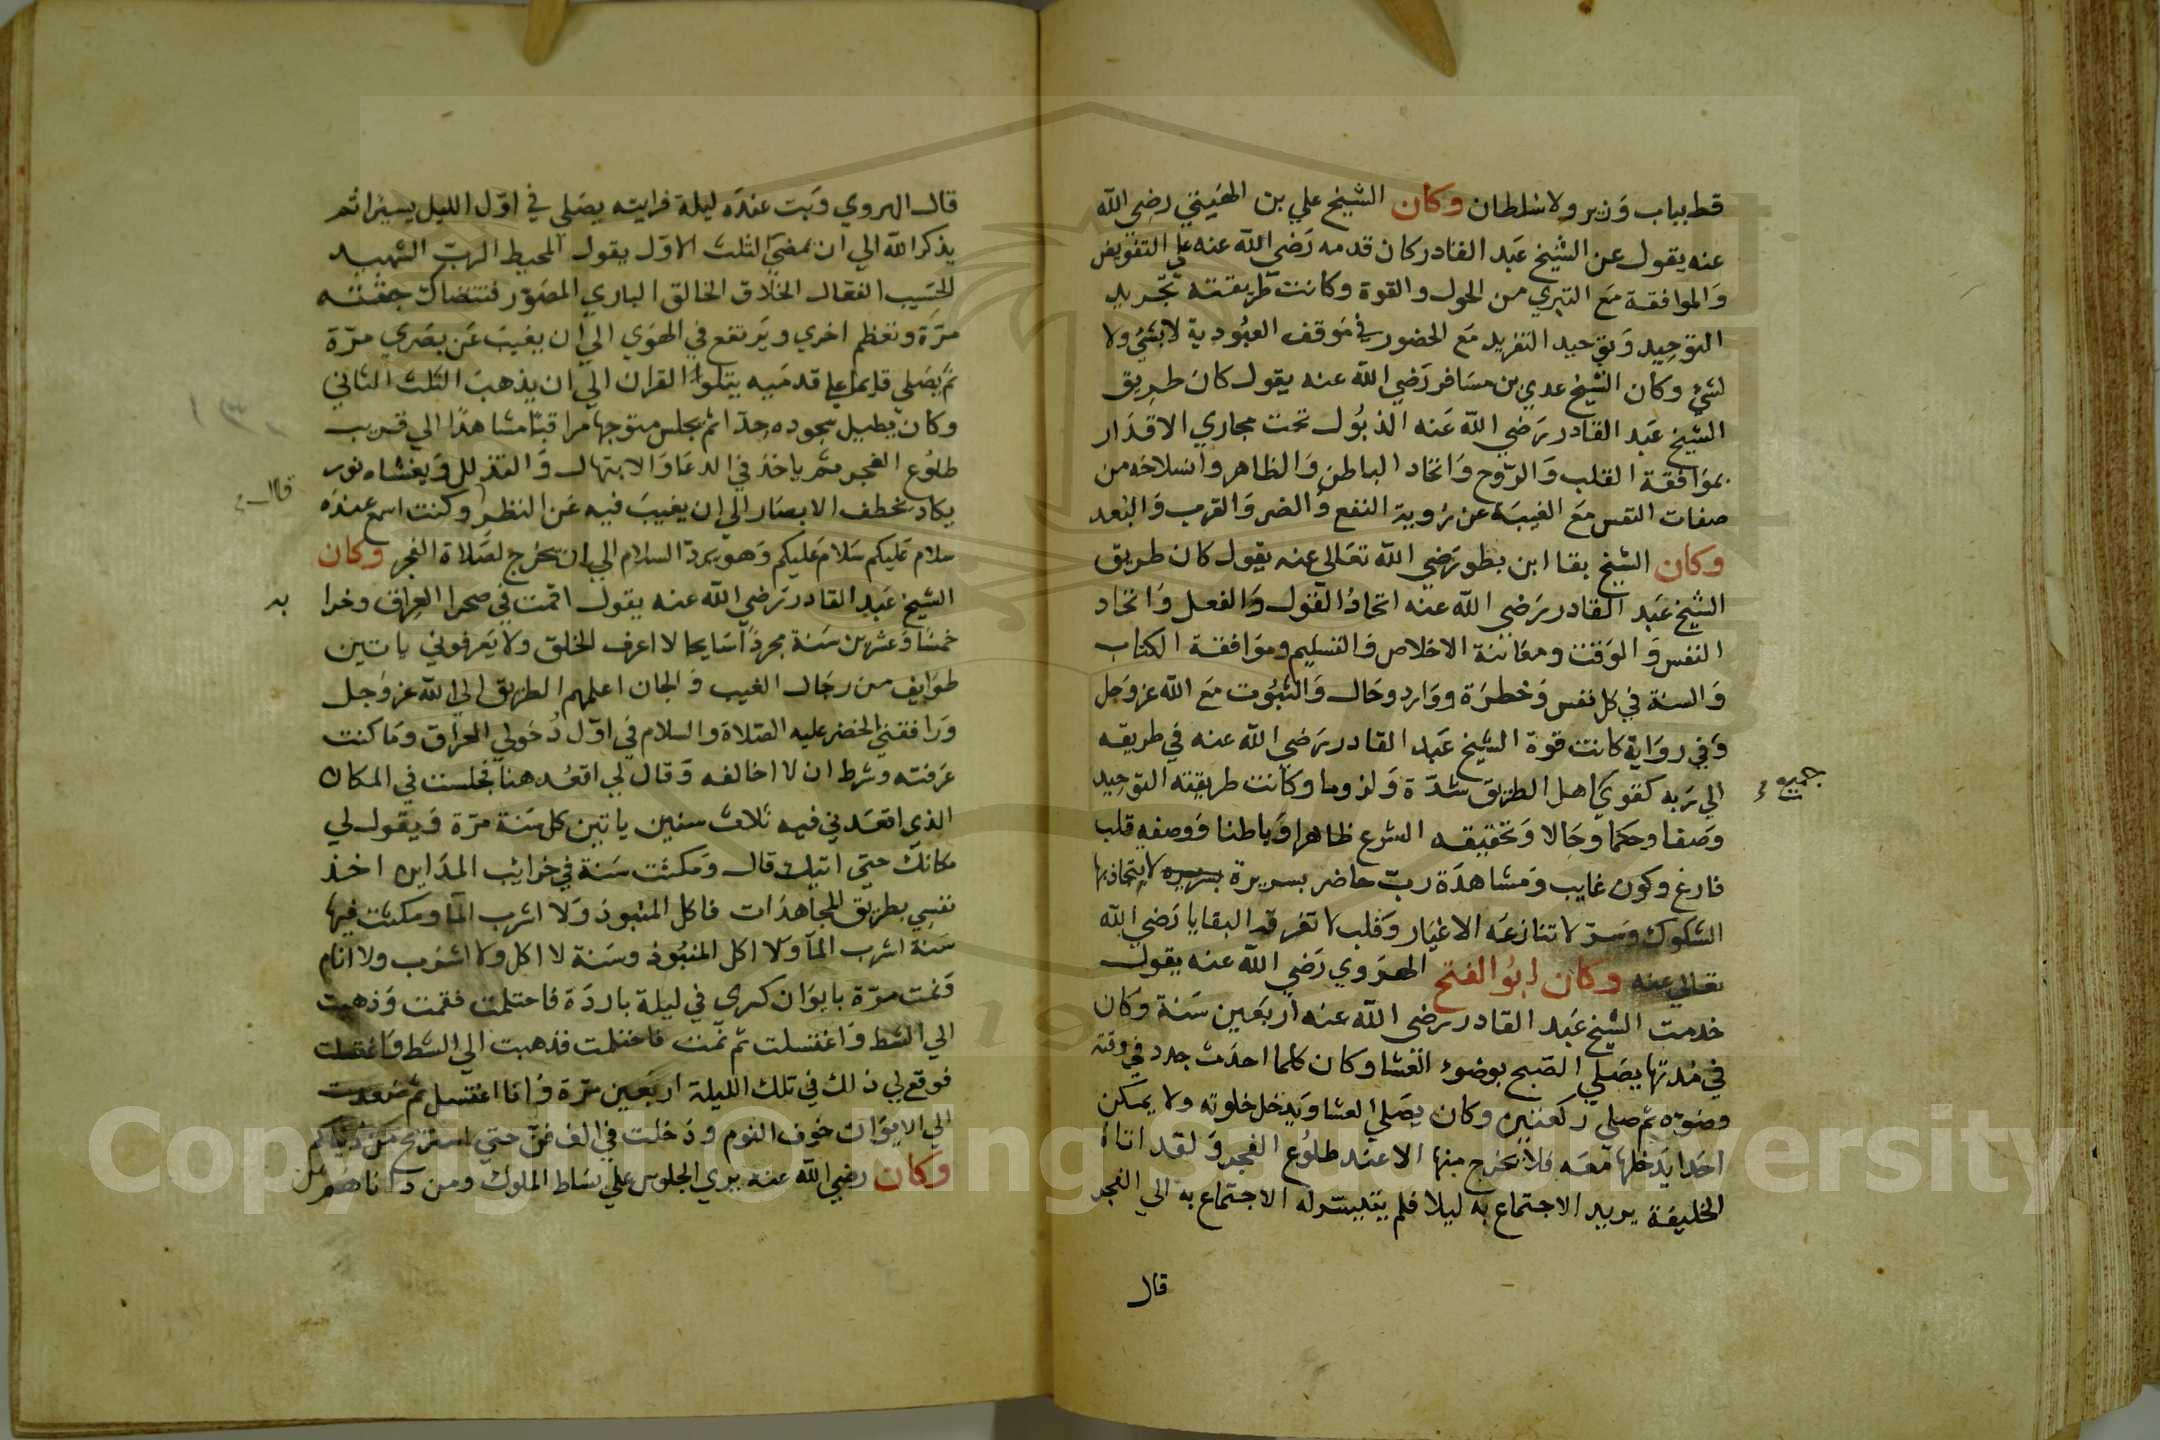 قط بباب وزير ولا سلطان وكان الشيخ علي بن الهيتي رضي الله
عنه يقول عن الشيخ عبد القادر كان قدمه رضي الله عنه علي التفويض
والموافقة مع التبري من الحول والقوة وكانت طريقته تجريد
التوحيد وتوحيد التفريد مع الحضور في موقف العبودية لا بشئ ولا
لشئ وكان الشيخ عدي بن مسافر رضي الله عنه يقول كان طريق
الشيخ عبد القادر رضي الله عنه الذبول تحت مجاري الاقدار
بموافقة القلب والروح واتحاد الباطن والظاهر وانسلاخه من
صفات النفس مع الغيبة عن روية النفع والضر والقرب والبعد
وكان الشيخ بقا ابن بطو رضي الله تعالي عنه يقول كان طريق
الشيخ عبد القادر رضي الله عنه اتحاد القول والفعل واتحاد
النفس والوقت ومعانقة الاخلاص والتسليم وموافقة الكتاب
والسنة في كل نفس وخطرة ووارد وحال والثبوت مع الله عز وجل
وفي رواية كانت قوة الشيخ عبد القادر رضي الله عنه في طريقه
الي ربه كقوي اهل الطريق شدة ولزوما وكانت طريقته التوحيد
جميع
وصفا وحكما وحالا وتحقيقه الشرع ظاهرا وباطنا ووصفه قلب
فارغ وكون غايب ومشاهدة رب حاضر بسريرة لا تتجاذبها
الشكوك وسر لا تنازعه الاغيار وقلب لا تفرقه البقايا رضي الله
تعالي عنه وكان ابو الفتح الهروي رضي الله عنه يقول
خدمت الشيخ عبد القادر رضي الله عنه اربعين سنة وكان
في مدتها يصلي الصبح بوضوء العشا وكان كلما احدث جدد في وقته
وضوءه ثم صلي ركعتين وكان يصلي العشا ويدخل خلوته ولا يمكن
احدا يدخلها معه فلا يخرج منها الا عند طلوع الفجر ولقد اتاه
الخليفة يريد الاجتماع به ليلا فلم يتيسر له الاجتماع به الي الفجر
قال
قال الهروي وبت عنده ليلة فرايته يصلي في اول الليل يسيرا ثم
يذكر الله الي ان يمضي الثلث الاول يقول المحيط الرب الشهيد
الحسيب الفعال الخلاق الخالق الباري المصور فتتضال جثته
مرة وتعظم اخري ويرتفع في الهوي الي ان يغيب عن بصري مرة
ثم يصلي قايما علي قدميه يتلوا القران الي ان يذهب الثلث الثاني
وكان يطيل سجوده جدا ثم يجلس متوجها مراقبا مشاهدا الي قريب
طلوع الفجر ثم ياخذ في الدعا والابتهال والتذلل ويغشاه نور
يكاد يخطف الابصار الي ان يغيب فيه عن النظر وكنت اسمع عنده
قال
سلام عليكم سلام عليكم وهو يرد السلام الي ان يخرج لصلاة الفجر وكان
الشيخ عبد القادر رضي الله عنه يقول اقمت في صحرا العراق وخرا
به
خمسا وعشرين سنة مجردا سايحا لا اعرف الخلق ولا يعرفوني ياتين
طوايف من رجال الغيب والجان اعلمهم الطريق الي الله عز وجل
ورافقني الخضر عليه الصلاة والسلام في اول دخولي العراق وما كنت
عرفته وشرط ان لا اخالفه وقال لي اقعد هنا فجلست في المكان
الذي اقعدني فيه ثلاث سنين ياتين كل سنة مرة ويقول لي
مكانك حتي اتيك قال ومكثت سنة في خرايب المداين اخذ
نفسي بطريق المجاهدات فاكل المنبوذ ولا اشرب الما ومكثت فيها
سنة اشرب الما ولا اكل المنبوذ وسنة لا اكل ولا اشرب ولا انام
ونمت مرة بايوان كسري في ليلة باردة فاحتلمت فقمت وذهبت
الي الشط واغتسلت ثم نمت فاحتلمت فذهبت الي الشط واغتسلت
فوقع لي ذلك في تلك الليلة اربعين مرة وانا اغتسل ثم صعدت
الي الايوان خوف النوم ودخلت في الف فن حتي استريح من دنياكم
وكان رضي الله عنه يري الجلوس علي بساط الملوك ومن داناهم من